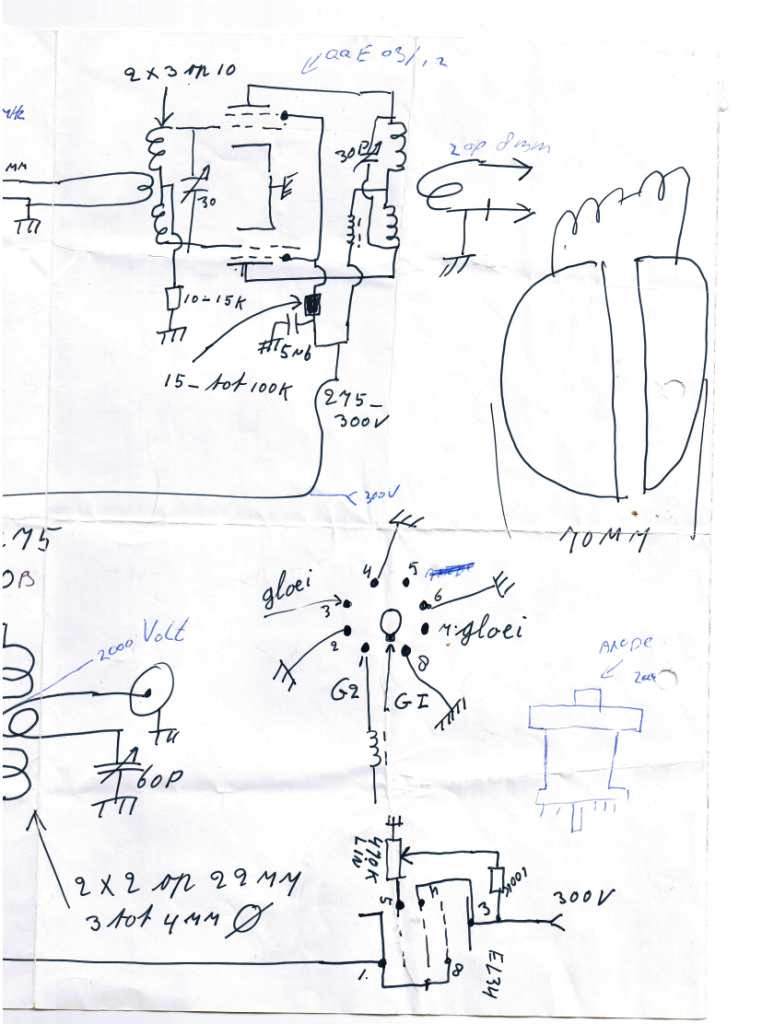 2 x 3 op 10
QQE 03/12
MM
30
30P
2op 8mm
10-15K
5N6
15-tot 100K
275-
300V
300V
70MM
.75
gloei
3
4
5
6
7.gloei
2
1
8
G2
G1
2000 Volt
60P
ANODE
2 x 2 op 22MM
3 tot 4MM Ø
470K
LIN
100K
300V
5
4
3
1.
8
EL34